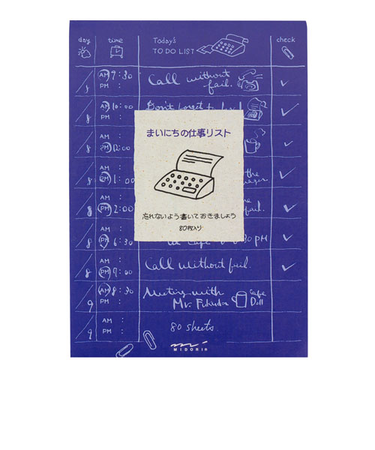 day time Today's check
TO DO LIST
1 AM 7:30 Call without
PM : fail.
8 AM 10:00 Don't forget to
PM
まいにちの仕事リスト
8 AM
PM 12:00
8 AM
PM 1:00 the
8 AM
PM 2:00 fail.
忘れないよう書いておきましょう
80枚入り
8 AM PM
8 AM 9:30 Call without fail.
PM :
9 AM 8:30 Meeting with
PM : Mr.
9 AM :
PM : 80 sheets
MIDORI